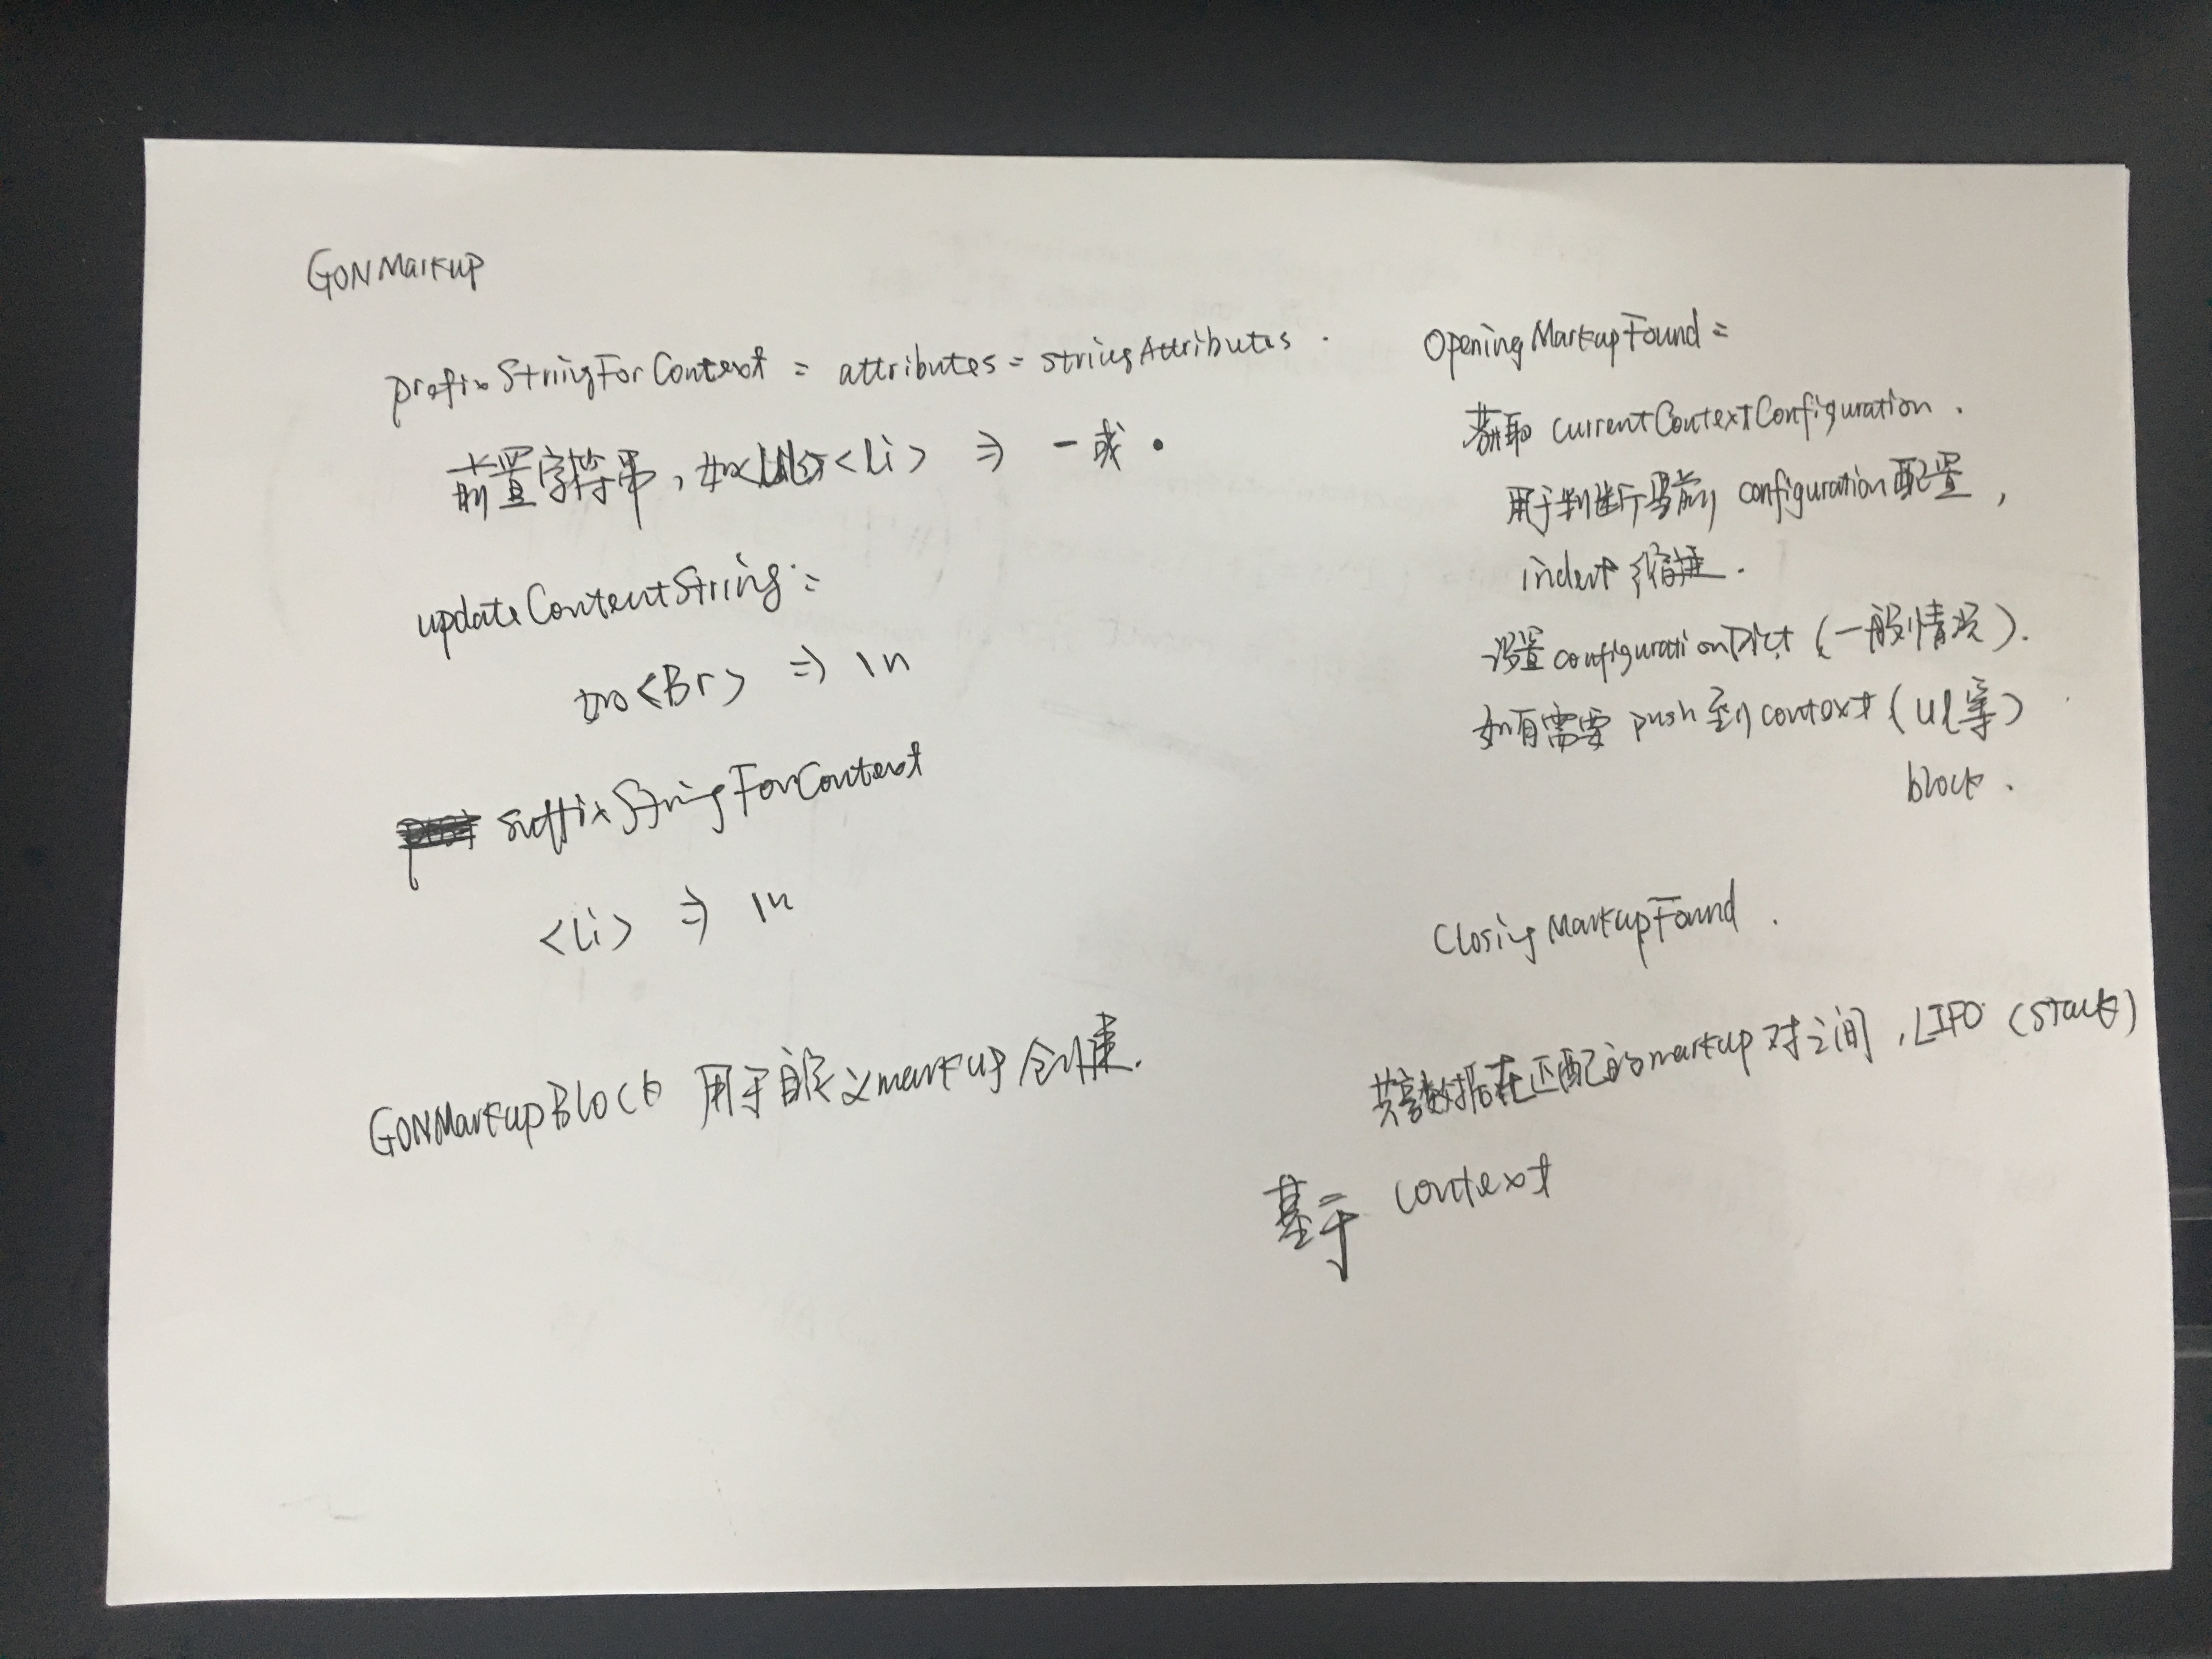 GONMarkup
prefixStringForContext = attributes = stringAttributes.
前置字符串, 如 <li> ⇒ - 或 •
updateContentString:
如 <Br> ⇒ \n
suffixStringForContext
<li> ⇒ \n
GONMarkupBlock 用于自定义markup创建.
OpeningMarkupFound =
获取 currentContextConfiguration.
用于判断当前 configuration配置,
indent 缩进.
设置configuration属性 (一般情况).
如有需要 push 到 context (ul等)
block.
ClosingMarkupFound.
其实就是在匹配的markup对之间, LIFO (Stack)
基于 context